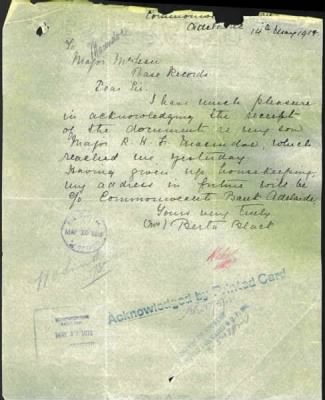 Commonwe
Adelaide 14th May 191
To
Major McLean
Base Records
Dear Sir.
I have much pleasure
in acknowledging the receipt
of the document re my son
Major R. H. F. Macindoe, which
reached me yesterday.
Having given up housekeeping,
my address in future will be
c/o Commonwealth Bank Adelaide
Yours very truly
(Mrs) Berta Black
Acknowledged by Printed Card